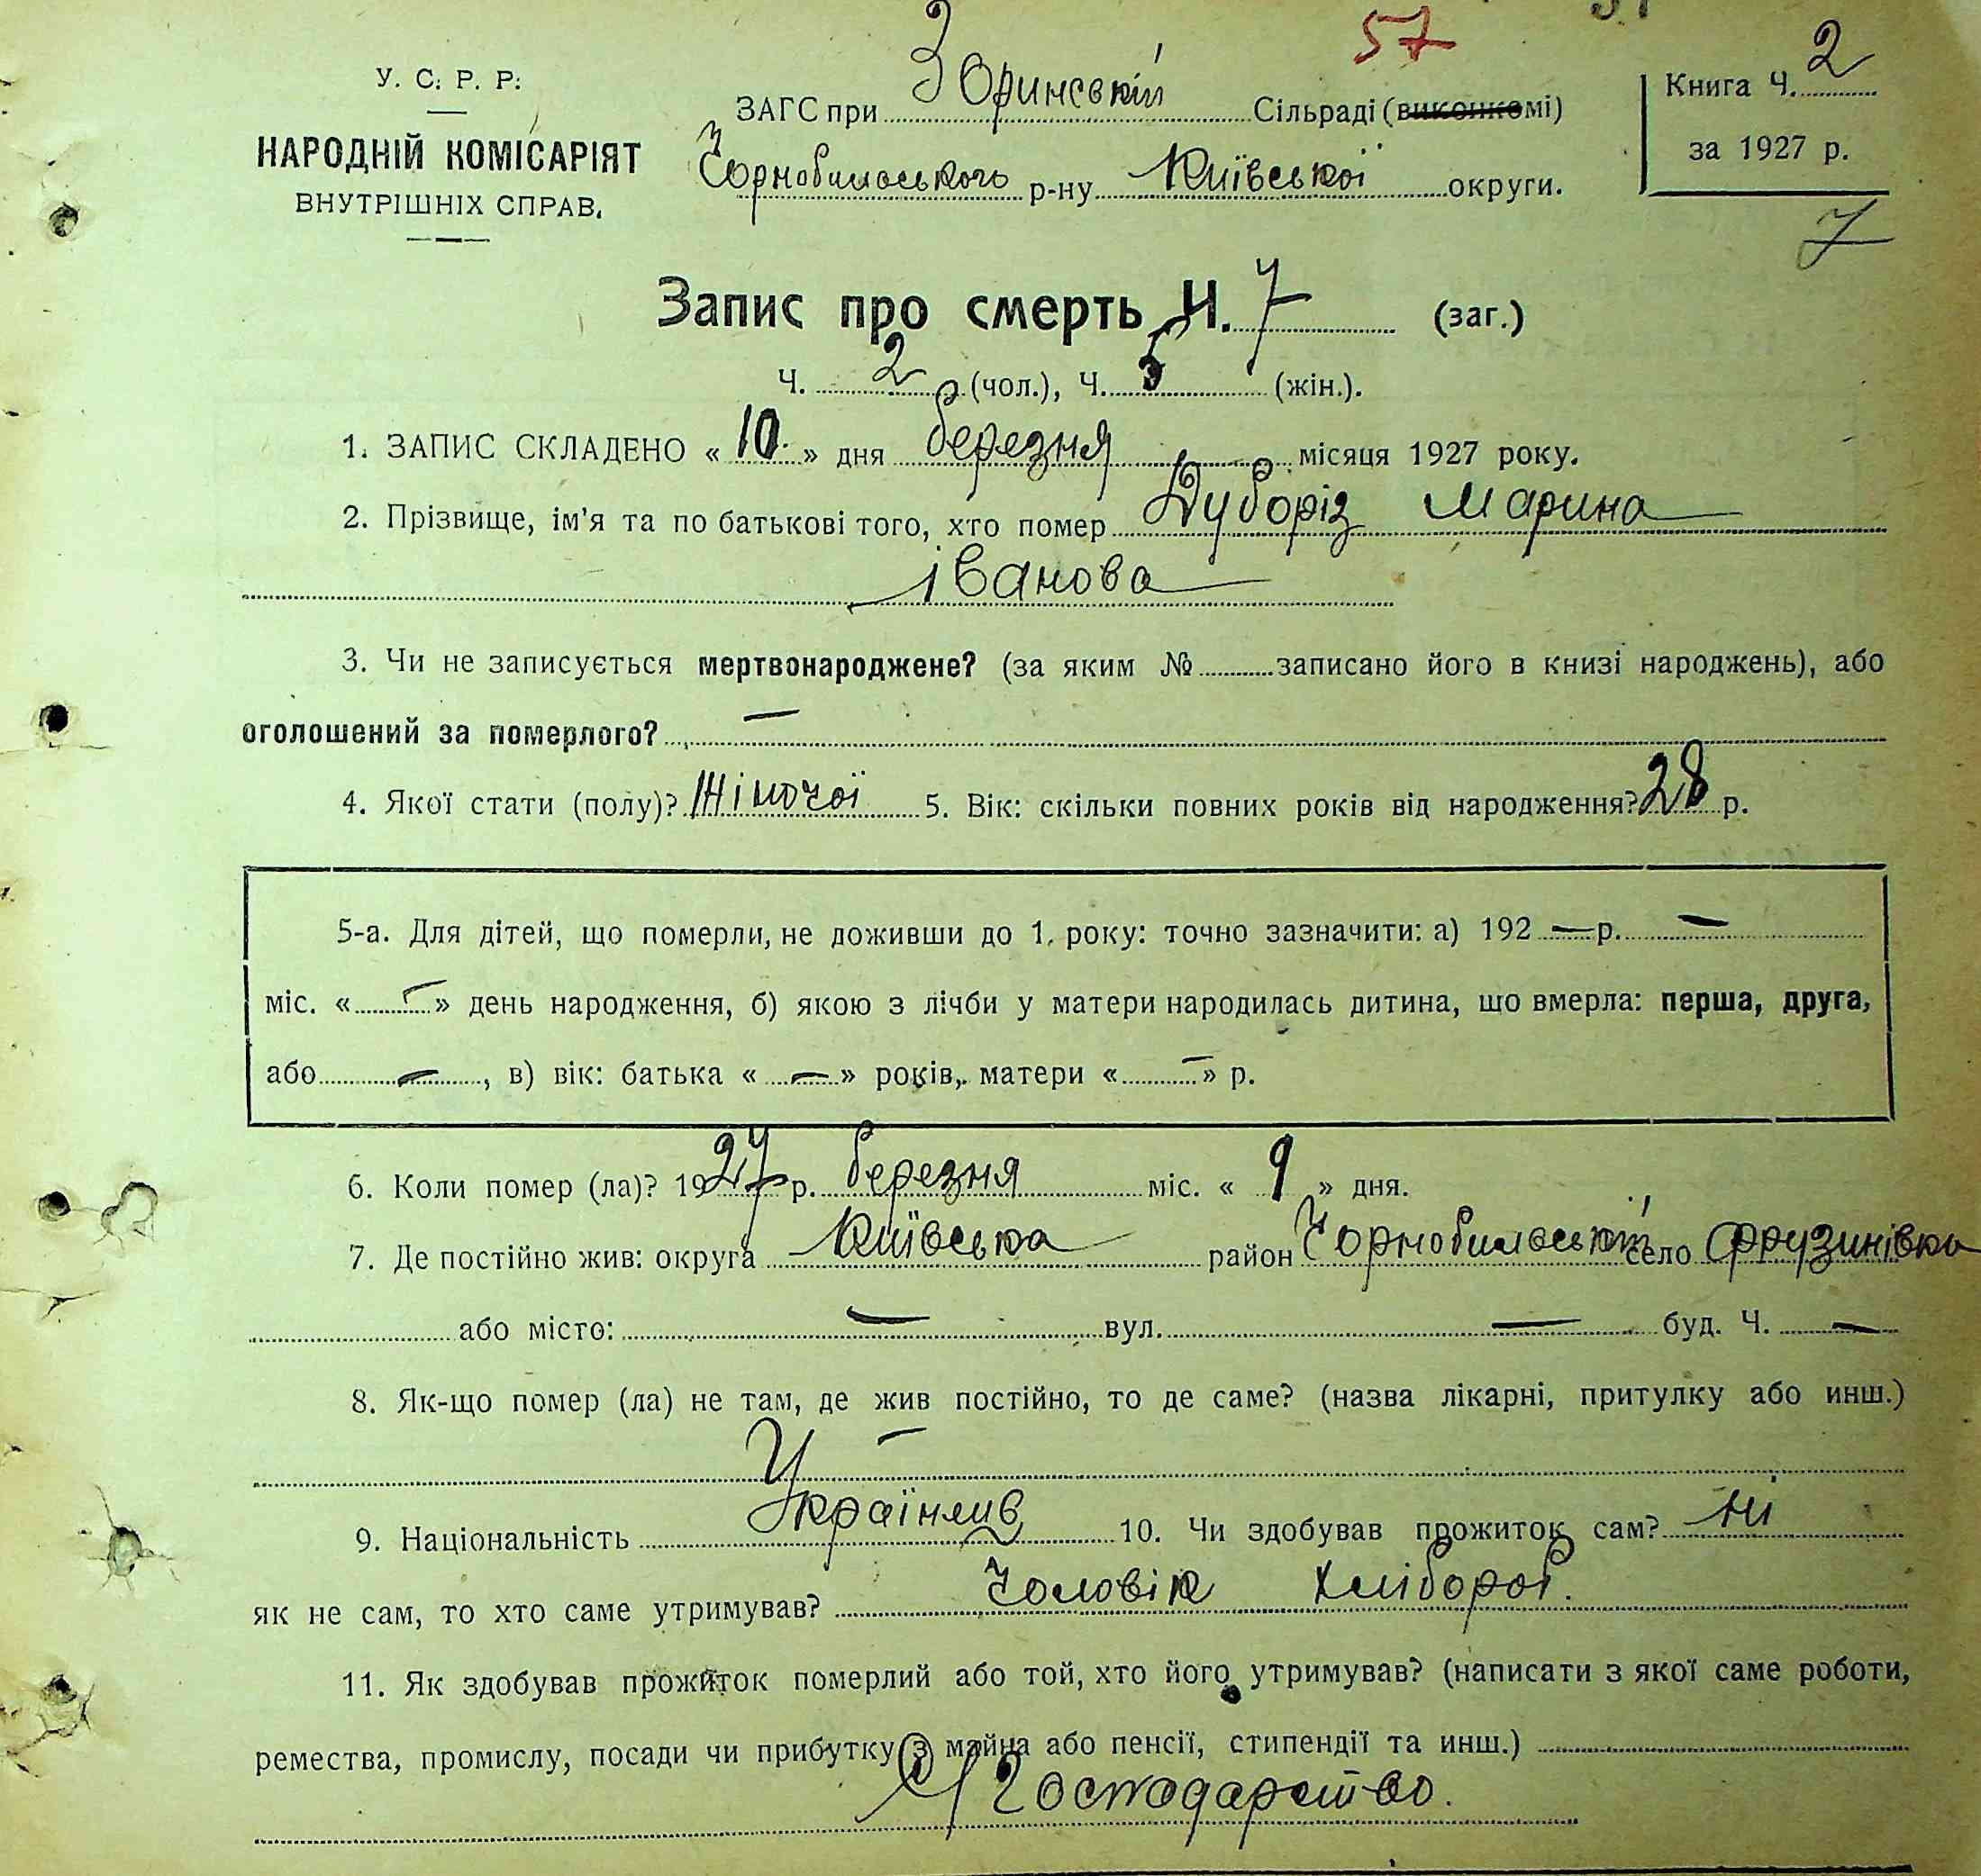 57
У. С. Р. Р.
ЗАГС при Зоринській Сільраді (виконкомі)
Книга Ч. 2
НАРОДНІЙ КОМІСАРІЯТ
Чорнобильського р-ну Київської округи.
за 1927 р.
ВНУТРІШНІХ СПРАВ.
7
Запис про смерть Ч. 7 (заг.)
Ч. 2 (чол.), Ч. 5 (жін.).
1. ЗАПИС СКЛАДЕНО « 10 » дня березня місяця 1927 року.
2. Прізвище, ім'я та по батькові того, хто помер Дуборіз Марина
іванова
3. Чи не записується мертвонароджене? (за яким № записано його в книзі народжень), або
оголошений за померлого? —
4. Якої стати (полу)? Жіночої 5. Вік: скільки повних років від народження? 28 р.
5-а. Для дітей, що померли, не доживши до 1 року: точно зазначити: а) 192 — р. —
міс. « — » день народження, б) якою з лічби у матери народилась дитина, що вмерла: перша, друга,
або —, в) вік: батька « — » років, матери « — » р.
6. Коли помер (ла)? 1927 р. березня міс. « 9 » дня.
7. Де постійно жив: округа Київська район Чорнобильський село Фрузинівка
або місто: — вул. — буд. Ч. —
8. Як-що помер (ла) не там, де жив постійно, то де саме? (назва лікарні, притулку або инш.)
—
9. Національність 10. Чи здобував прожиток сам? ні
як не сам, то хто саме утримував? Чоловік Хлібороб.
11. Як здобував прожиток померлий або той, хто його утримував? (написати з якої саме роботи,
ремества, промислу, посади чи прибутку з майна або пенсії, стипендії та инш.)
Господарство.